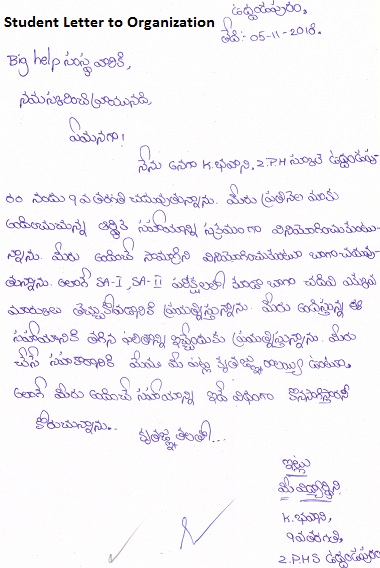 Student Letter to Organization
ఉద్దండపురం,
తేది:- 05-11-2018.
Big help సంస్థ వారికి,
నమస్కరించి వ్రాయునది,
ఏమనగా!
నేను అనగా K. భవాని, Z.P.H స్కూల్ ఉద్దండపు-
రం నందు 9వ తరగతి చదువుతున్నాను. మీరు ప్రతినెల మాకు
అందించుచున్న ఆర్థిక సహాయాన్ని సక్రమంగా వినియోగించుకుంటు-
న్నాను. మీరు అందించే సామాగ్రిని వినియోగించుకుంటూ బాగా చదువు-
తున్నాను. అలాగే SA-I, SA-II పరీక్షలలో కూడా బాగా చదివి ఎక్కువ
మార్కులు తెచ్చుకోవడానికి ప్రయత్నిస్తున్నాను. మీరు అందిస్తున్న ఈ
సహాయానికి తగిన ఫలితాన్ని ఇచ్చేందుకు ప్రయత్నిస్తున్నాను. మీరు
చేసే సహకారానికి మేము మీ పట్ల కృతజ్ఞులమై ఉంటాం.
అలాగే మీరు అందించే సహాయాన్ని ఇదే విధంగా కొనసాగిస్తారని
కోరుచున్నాను..
కృతజ్ఞతలతో...
ఇట్లు
మీ విద్యార్థిని,
K. భవాని,
9వ తరగతి,
Z.P.H.S ఉద్దండపురం